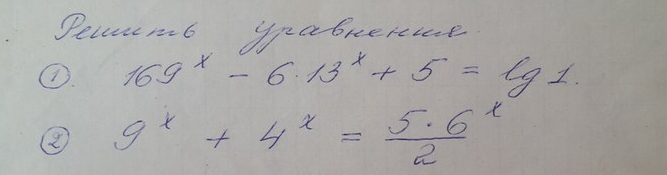 Решить уравнения
① 169^x - 6·13^x + 5 = lg 1.
② 9^x + 4^x = (5·6^x)/2